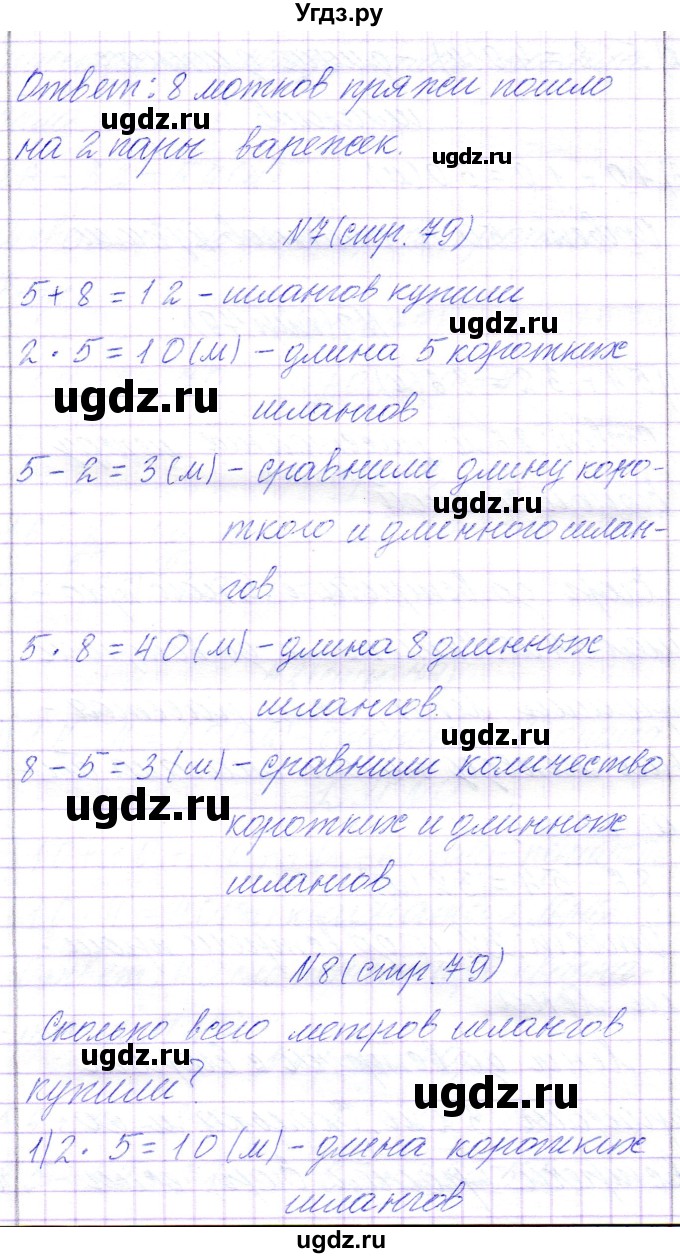 Угдз.ру
Ответ: 8 мотков пряжи пошло
ugdz.ru
на 2 пары варежек.
ugdz.ru
N7(стр. 79)
5+8=12 - шлангов купили
ugdz.ru
2·5=10(м) - длина 5 коротких
ugdz.ru
шлангов
5-2=3(м) - сравнили длину коро-
ugdz.ru
ткого и длинного шлан-
гов
5·8=40(м) - длина 8 длинных
шлангов.
ugdz.ru
8-5=3(м) - сравнили количество
ugdz.ru
коротких и длинных
шлангов
N8(стр. 79)
Сколько всего метров шлангов
ugdz.ru
купили?
ugdz.ru
1)2·5=10(м) - длина коротких
ugdz.ru
шлангов
ugdz.ru